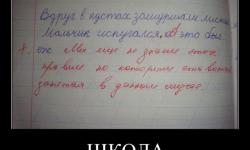 Вдруг в кустах зашуршали листья
Мальчик испугался. А это был
ёж. Мы ещё не знаем этих
правил по которым эта
запятая в данном случае.
ШКОЛА